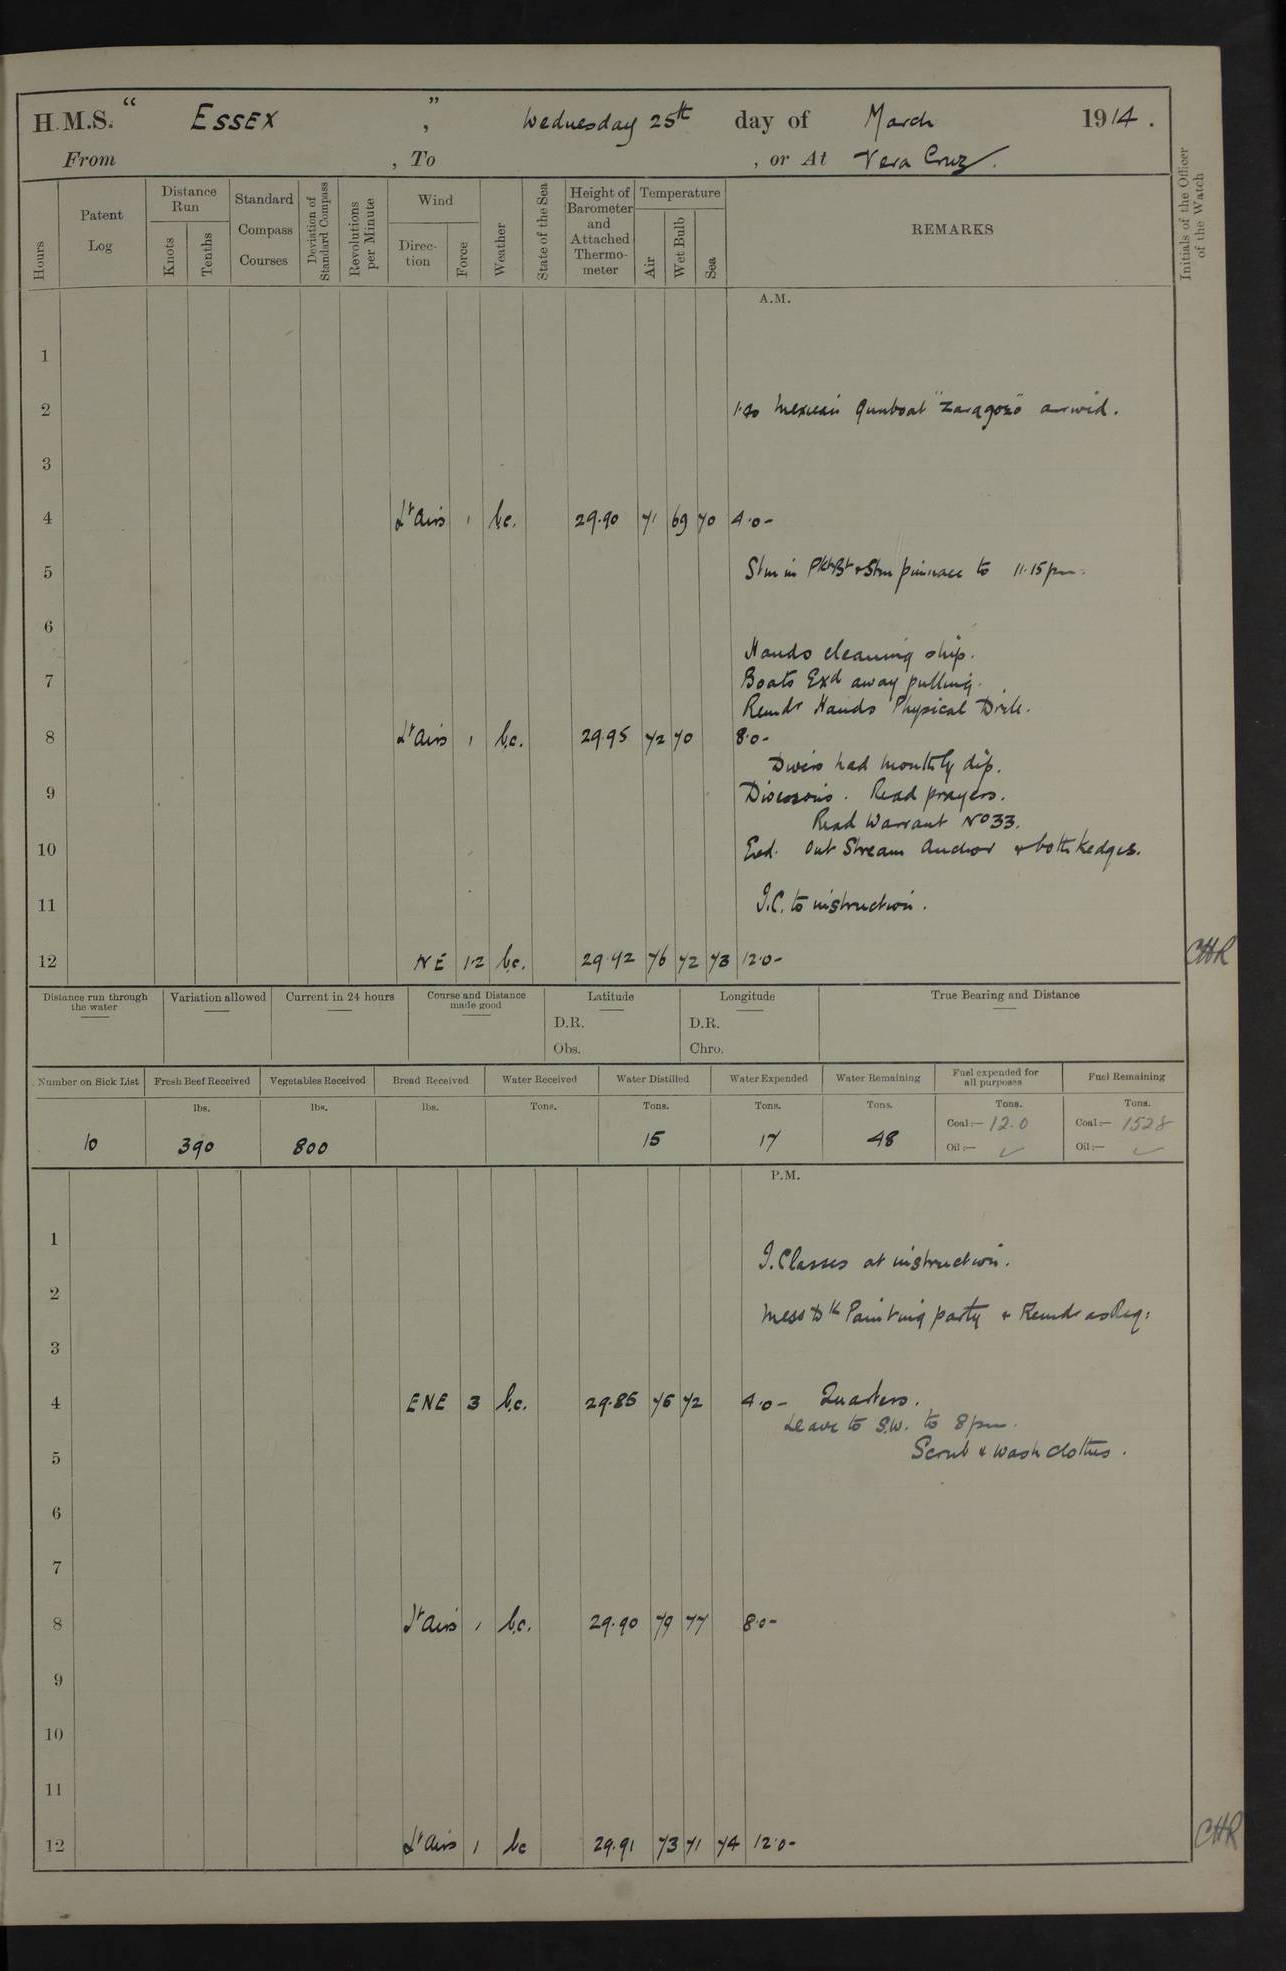 H.M.S. " ESSEX ", Wednesday 25th day of March 1914.
From , To , or At Vera Cruz.
Hours
Patent Log
Distance Run
Knots
Tenths
Standard Compass Courses
Deviation of Standard Compass
Revolutions per Minute
Wind
Direction
Force
Weather
State of the Sea
Height of Barometer and Attached Thermometer
Temperature
Air
Wet Bulb
Sea
REMARKS
Initials of the Officer of the Watch
A.M.
1
2 1.40 Mexican Gunboat "Zaragoza" arrived.
3
4 Lt airs 1 b.c. 29.90 71 69 70 4.0-
5 Stm in Pkt Bt & Stm pinnace to 11.15 pm.
6
Hands cleaning ship.
7 Boats Exd away pulling.
Remdr Hands Physical Drill.
8 Lt airs 1 b.c. 29.95 72 70 8.0-
Divers had monthly dip.
9 Divisions. Read prayers.
Read Warrant No 33.
10 Exd. Out Stream Anchor & both Kedges.
11 I.C. to instruction.
12 NE 1.2 b.c. 29.92 76 72 73 12.0- CHR
Distance run through the water
Variation allowed
Current in 24 hours
Course and Distance made good
Latitude
D.R.
Obs.
Longitude
D.R.
Chro.
True Bearing and Distance
Number on Sick List Fresh Beef Received Vegetables Received Bread Received Water Received Water Distilled Water Expended Water Remaining Fuel expended for all purposes Fuel Remaining
lbs. lbs. lbs. Tons. Tons. Tons. Tons. Tons. Tons.
10 390 800 15 17 48 Coal:— 12.0 Coal:— 1528
Oil:— ✓ Oil:— ✓
P.M.
1
I. Classes at instruction.
2
Mess Dk Painting party & Remdr as Req:
3
4 ENE 3 b.c. 29.85 75 72 4.0- Quarters.
Leave to S.W. to 8 pm.
5 Scrub & wash clothes.
6
7
8 Lt airs 1 b.c. 29.90 79 77 8.0-
9
10
11
12 Lt airs 1 bc 29.91 73 71 74 12.0- CHR